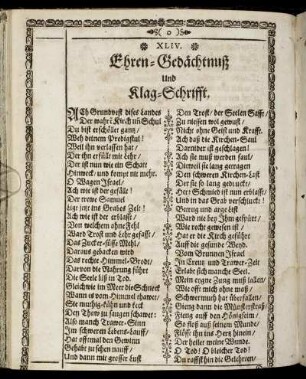 XLIV.
Ehren-Gedächtnuß
Und
Klag-Schrifft.
ACh Grundvest dises Landes
Der wahrē Kirch uñ Schul
Du bist erschöllet gantz/
Weh deinem Predigstul!
Weil ihn verlassen hat/
Der ihn erfüllt mit Lehr/
Der ist nun wie ein Schatt
Hinweck/ und kompt nie mehr.
O Wagen Israel/
Ach wie ist der gefält!
Der newe Samuel
Ligt jetz ins Grabes Zelt!
Ach wie ist der erblaßt/
Von welchem ohne Fehl
Ward Trost und Lehr gefaßt/
Das Zucker-süsse Mehl/
Daraus gebacken wird
Das rechte Himmel-Brodt/
Darvon die Nahrung führt
Die Seele biß in Tod.
Gleich wie im Meer die Schnecke
Wann es vom Himmel thawet/
Sie muthig-kühn und keck
Den Thaw zu saugen schawet:
Also manch Trawer-Sinn
Im schweren Lebens-Lauff/
Hat offtmal den Gewinn
Gehabt zu sehen nauff/
Und dann mit grosser Lust
Den Trost/ der Seelen Safft/
Zu niessen wol gewust/
Nicht ohne Geist und Krafft.
Ach daß die Kirchen-Saul
Darnider ist geschlagen!
Ach sie muß werden faul/
Die weil sie lang getragen
Den schweren Kirchen-Last
Der sie so lang gedruckt/
Herr Schmidt ist nun erblaßt/
Und in das Grab verschluckt!
Betrug und arge List
Ward nie bey Ihm gespürt/
Wie recht gewesen ist/
Hat er die Kirch geführt
Auff die gesunde Weyd.
Vom Brunnen Israel
In Creutz und Trawer-Zeit
Erlabt sich manche Seel.
Mein enge Zung muß lallen/
Wie offt mich ohne maß/
Schwermuth hat überfallen/
Gieng dann die Münsterstraß
Fleng auff den Königstein/
So floß auß seinem Munde/
Flösse ihn ins Hertz hinein/
Der heilet meine Wunde.
O Tod! O bleicher Tod!
Du raffst hin die Gelehrten/